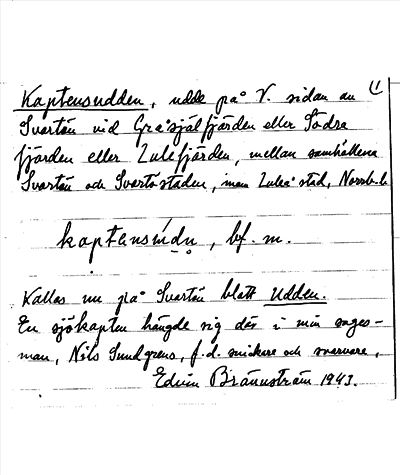 (1
Kaptensudden, udde på V. sidan av
Svartön vid Gråsjälfjärden eller Södra
fjärden eller Lulefjärden, mellan samhällena
Svartön och Svartöstaden, inom Luleå stad, Norrb. l.
kaptensúdn, bf. m.
Kallas nu på Svartön blott Udden.
En sjökapten hängde sig där i min sages-
man, Nils Sundgrens, f.d. snickare och svarvare,
Edvin Brännström 1943.